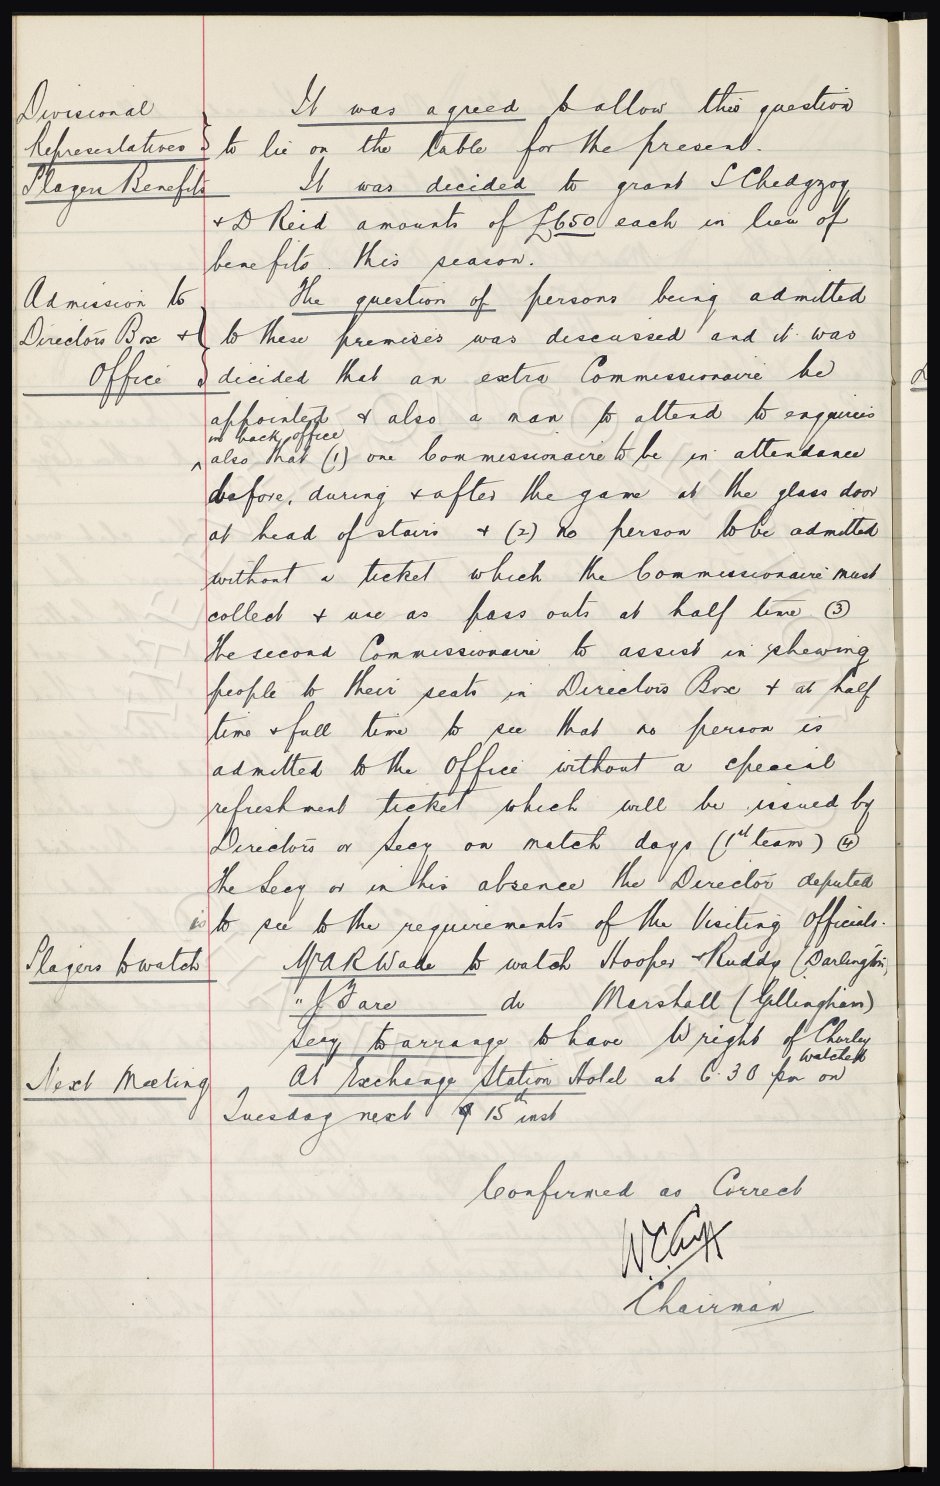 Divisional
Representatives
It was agreed to allow this question
to lie on the table for the present.
Players Benefits
It was decided to grant S Chedgzoy
+ D Reid amounts of £650 each in lieu of
benefits this season.
Admission to
Directors Box +
Office
The question of persons being admitted
to these premises was discussed and it was
decided that an extra Commissionaire be
appointed + also a man to attend to enquiries
in back office
^ also that (1) one Commissionaire to be in attendance
before, during + after the game at the glass door
at head of stairs + (2) no person to be admitted
without a ticket which the Commissionaire must
collect + use as pass outs at half time (3)
The second Commissionaire to assist in shewing
people to their seats in Directors Box + at half
time + full time to see that no person is
admitted to the Office without a special
refreshment ticket which will be issued by
Directors or Secy on match days (1st team) (4)
The Secy or in his absence the Director deputed
is to see to the requirements of the Visiting Officials.
Players to watch
Mr A R Wade to watch Hooper + Ruddy (Darlington)
" J Fare do Marshall (Gillingham)
Secy to arrange to have Wright of Chorley
watched
Next Meeting
At Exchange Station Hotel at 6.30 pm on
Tuesday next 15th inst
Confirmed as Correct
W.C. Cuff
Chairman